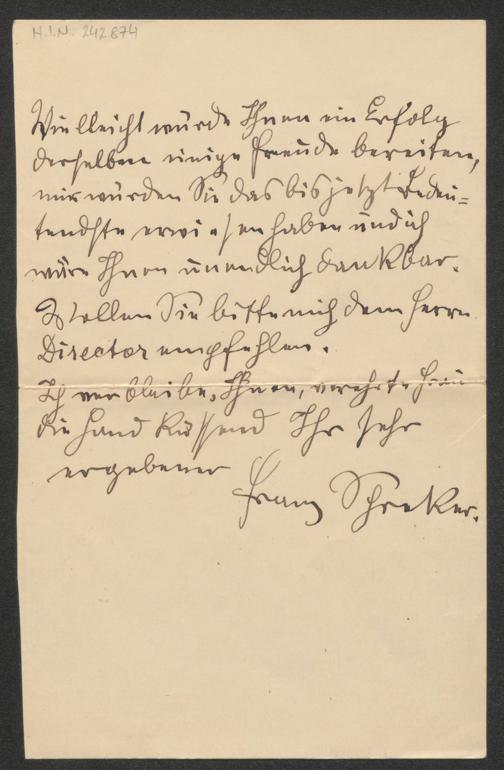 H.I.N. 242874
Vielleicht würde Ihnen ein Erfolg
derselben einige Freude bereiten,
mir würden Sie das bis jetzt Bedeu=
tendste erwiesen haben und ich
wäre Ihnen unendlich dankbar.
Wollen Sie bitte mich dem Herrn
Director empfehlen.
Ich verbleibe, Ihnen, verehrte Frau
die Hand küssend Ihr sehr
ergebener
Franz Schreker.